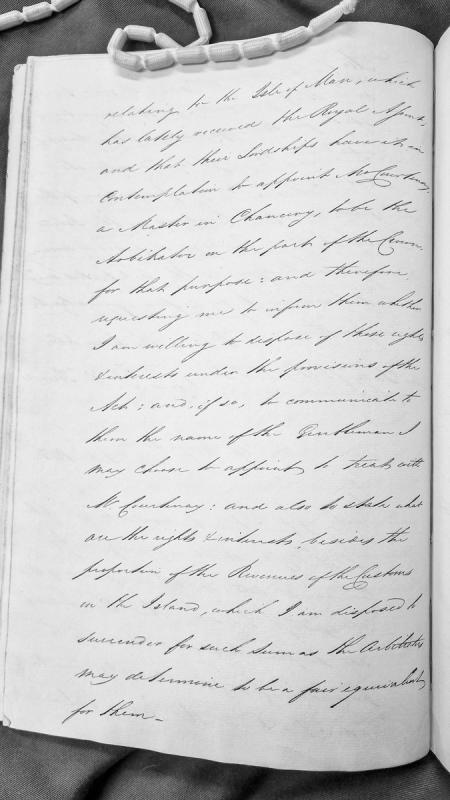 relating to the Isle of Man, which
has lately received the Royal Assent,
and that their Lordships have it in
Contemplation to appoint Mr Courtenay,
a Master in Chancery, to be the
Arbitrator on the part of the Crown,
for that purpose: and therefore
requesting me to inform them whether
I am willing to dispose of those rights
& interests under the provisions of the
Act; and, if so, to communicate to
them the name of the Gentleman I
may choose to appoint, to treat with
Mr Courtenay: and also to state what
are the rights & interests, besides the
proportion of the Revenues of the Customs
in the Island, which I am disposed to
surrender for such Sum as the Arbitrators
may determine to be a fair equivalent
for them -